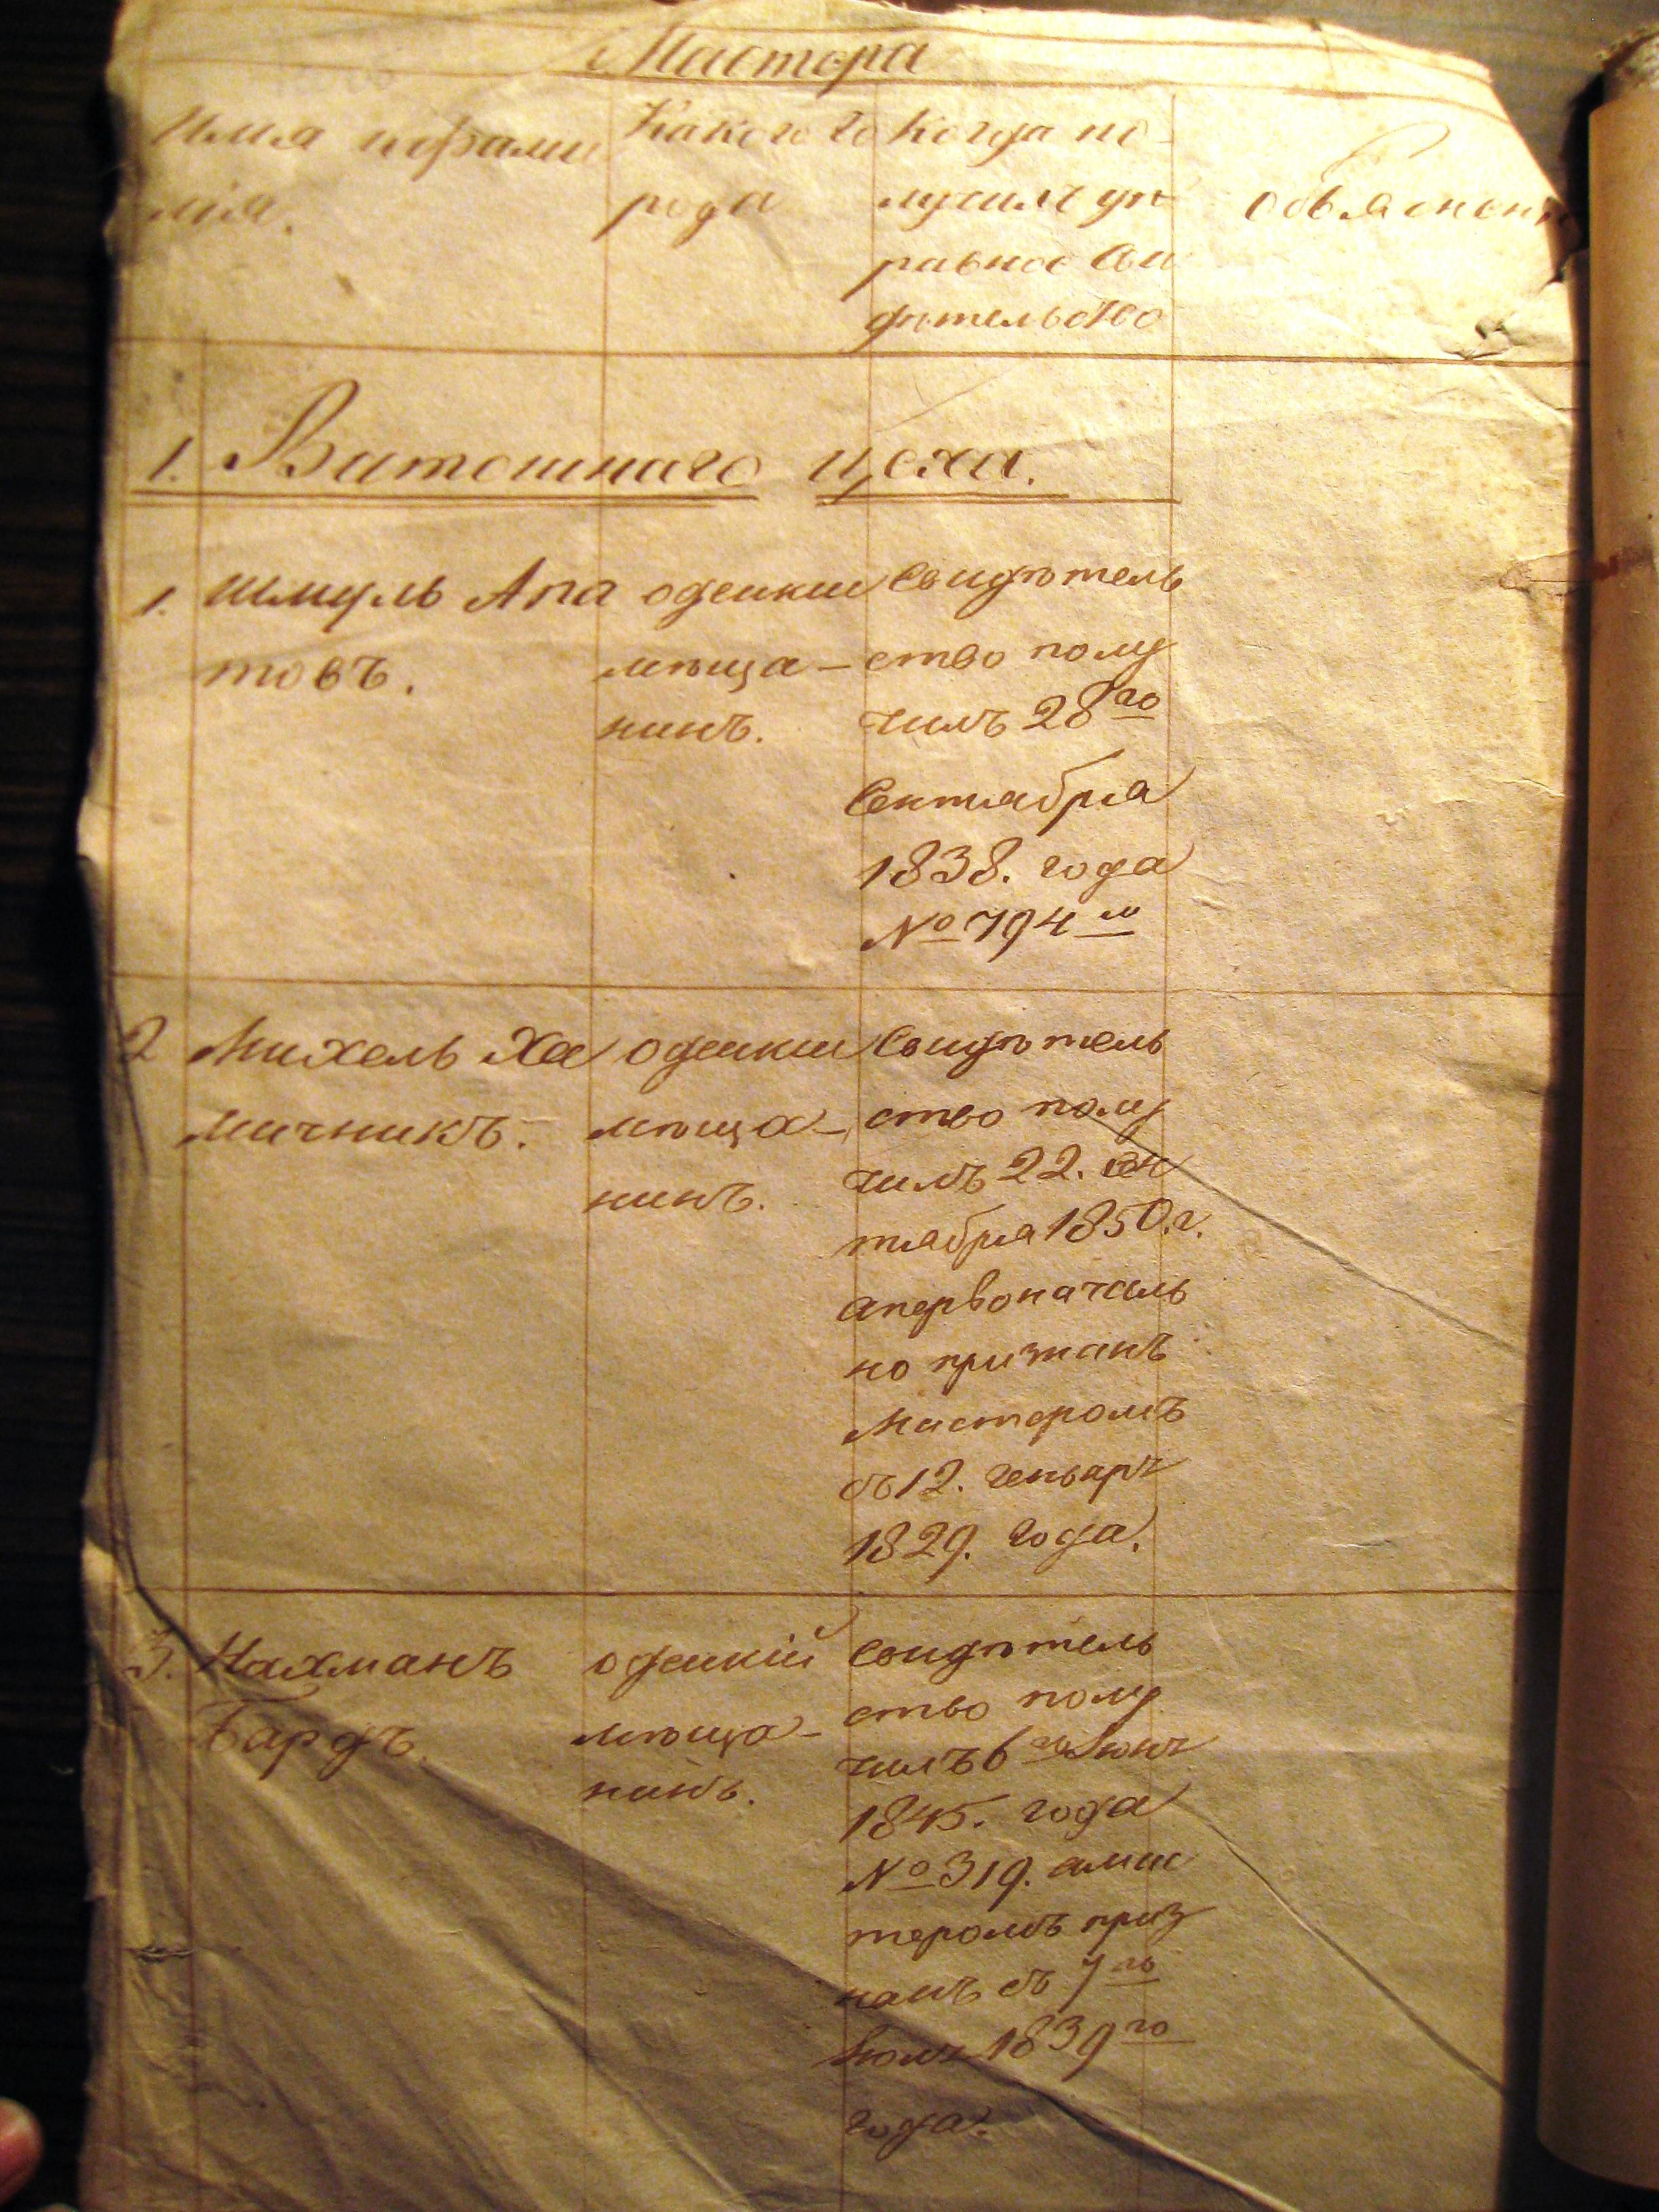 Мастера
Имя и фами
лія.
Какого го
рода
Когда по-
лучилъ уп
равное сви
дѣтельство
Объяснені
1. Витошнаго цеха.
1. Шмуль Апа
товъ.
одескій
мѣща-
нинъ.
Свидѣтель
ство полу
чилъ 28го
Сентября
1838. года
№ 794м
2 Михель Ха
мичникъ.
одескій
мѣща-
нинъ.
Свидѣтель
ство полу
чилъ 22. сен
тября 1850. г.
а первоначаль
но признанъ
Мастеромъ
съ 12. генваря
1829. года.
3. Нахманъ
Бардъ.
одескій
мѣща-
нинъ.
Свидѣтель
ство полу
чилъ 6го Іюня
1845. года
№ 319. а мас
теромъ приз
нанъ съ 7го
Іюля 1839го
года.